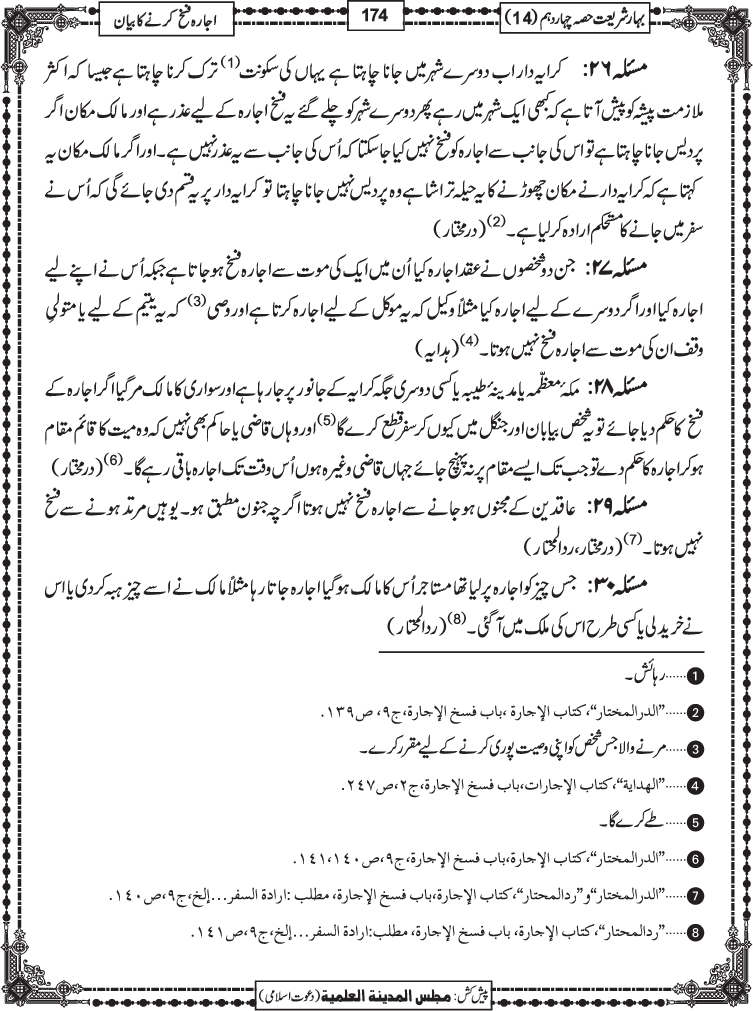 بہارِ شریعت حصہ چہاردہم (14)
174
اجارہ فسخ کرنے کا بیان
مسئلہ ۲۶: کرایہ دار اب دوسرے شہر میں جانا چاہتا ہے یہاں کی سکونت(1) ترک کرنا چاہتا ہے جیسا کہ اکثر
ملازمت پیشہ کو پیش آتا ہے کہ کبھی ایک شہر میں رہے پھر دوسرے شہر کو چلے گئے یہ فسخ اجارہ کے لیے عذر ہے اور مالک مکان اگر
پردیس جانا چاہتا ہے تو اس کی جانب سے اجارہ کو فسخ نہیں کیا جاسکتا کہ اُس کی جانب سے یہ عذر نہیں ہے۔ اور اگر مالک مکان یہ
کہتا ہے کہ کرایہ دار نے مکان چھوڑنے کا یہ حیلہ تراشا ہے وہ پردیس نہیں جانا چاہتا تو کرایہ دار پر یہ قسم دی جائے گی کہ اُس نے
سفر میں جانے کا مستحکم ارادہ کرلیا ہے۔(2) (درمختار)
مسئلہ ۲۷: جن دو شخصوں نے عقد اجارہ کیا اُن میں ایک کی موت سے اجارہ فسخ ہو جاتا ہے جبکہ اُس نے اپنے لیے
اجارہ کیا اور اگر دوسرے کے لیے اجارہ کیا مثلاً وکیل کہ یہ موکل کے لیے اجارہ کرتا ہے اور وصی(3) کہ یہ یتیم کے لیے یا متولیِ
وقف ان کی موت سے اجارہ فسخ نہیں ہوتا۔(4) (ہدایہ)
مسئلہ ۲۸: مکۂ معظّمہ یا مدینۂ طیبہ یا کسی دوسری جگہ کرایہ کے جانور پر جا رہا ہے اور سواری کا مالک مر گیا اگر اجارہ کے
فسخ کا حکم دیا جائے تو یہ شخص بیابان اور جنگل میں کیوں کر سفر قطع کرے گا(5) اور وہاں قاضی یا حاکم بھی نہیں کہ وہ میت کا قائم مقام
ہو کر اجارہ کا حکم دے تو جب تک ایسے مقام پر نہ پہنچ جائے جہاں قاضی وغیرہ ہوں اُس وقت تک اجارہ باقی رہے گا۔(6) (درمختار)
مسئلہ ۲۹: عاقدین کے مجنوں ہو جانے سے اجارہ فسخ نہیں ہوتا اگرچہ جنون مطبق ہو۔ یوہیں مرتد ہونے سے فسخ
نہیں ہوتا۔(7) (درمختار، ردالمحتار)
مسئلہ ۳۰: جس چیز کو اجارہ پر لیا تھا مستاجر اُس کا مالک ہوگیا اجارہ جاتا رہا مثلاً مالک نے اسے چیز ہبہ کر دی یا اس
نے خرید لی یا کسی طرح اس کی ملک میں آگئی۔(8) (ردالمحتار)
1......رہائش۔
2......”الدرالمختار“،کتاب الإجارة ،باب فسخ الإجارة،ج۹، ص۱۳۹.
3......مرنے والا جس شخص کو اپنی وصیت پوری کرنے کے لیے مقرر کرے۔
4......”الهداية“،کتاب الإجارات،باب فسخ الإجارة،ج۲،ص۲۴۷.
5......طے کرے گا۔
6......”الدرالمختار“، کتاب الإجارة،باب فسخ الإجارة،ج۹،ص۱۴۰،۱۴۱.
7......”الدرالمختار“و”ردالمحتار“،کتاب الإجارة،باب فسخ الإجارة، مطلب :ارادة السفر...إلخ،ج۹،ص۱۴۰.
8......”ردالمحتار“، کتاب الإجارة، باب فسخ الإجارة، مطلب:ارادة السفر...إلخ،ج۹،ص۱۴۱.
پیش کش: مجلس المدينة العلمية (دعوت اسلامی)